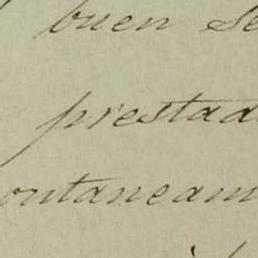 buen se
prestad
ontaneam